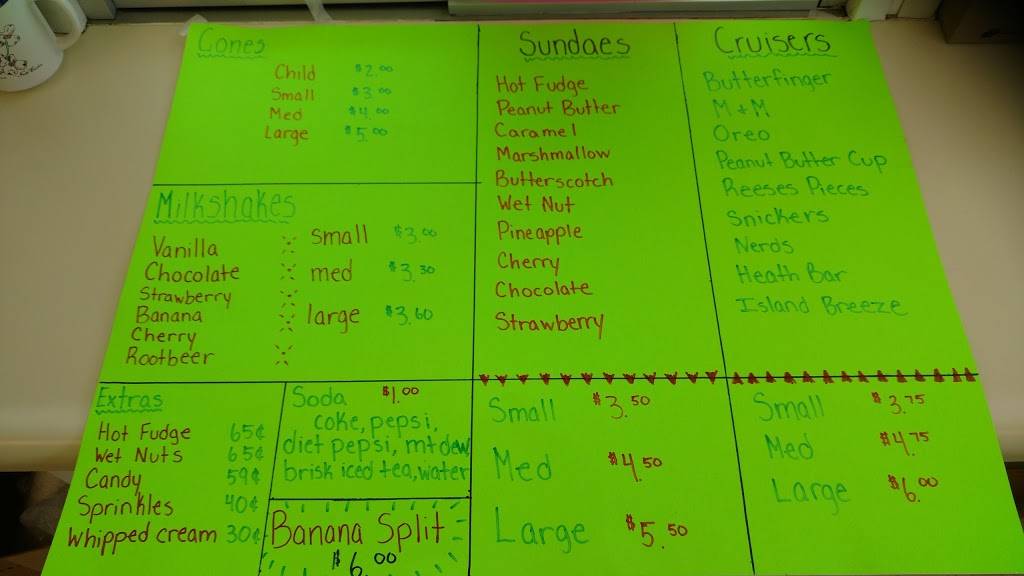 Cones
Child $2.00
Small $3.00
Med $4.00
Large $5.00
Milkshakes
Vanilla
Chocolate
Strawberry
Banana
Cherry
Rootbeer
small $3.00
med $3.30
large $3.60
Extras
Hot Fudge 65¢
Wet Nuts 65¢
Candy 59¢
Sprinkles 40¢
Whipped cream 30¢
Soda $1.00
coke, pepsi,
diet pepsi, mt dew
brisk iced tea, water
Banana Split
$6.00
Sundaes
Hot Fudge
Peanut Butter
Caramel
Marshmallow
Butterscotch
Wet Nut
Pineapple
Cherry
Chocolate
Strawberry
Small $3.50
Med $4.50
Large $5.50
Cruisers
Butterfinger
M+M
Oreo
Peanut Butter Cup
Reeses Pieces
Snickers
Nerds
Heath Bar
Island Breeze
Small $3.75
Med $4.75
Large $6.00